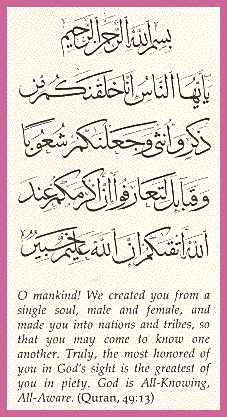 بسم الله الرحمن الرحيم
يَأَيُّهَا النَّاسُ إِنَّا خَلَقْنَكُم مِّن
ذَكَرٍ وَأُنثَى وَجَعَلْنَكُمْ شُعُوبًا
وَقَبَائِلَ لِتَعَارَفُوا إِنَّ أَكْرَمَكُمْ عِندَ
اللَّهِ أَتْقَىكُمْ إِنَّ اللَّهَ عَلِيمٌ خَبِيرٌ
O mankind! We created you from a
single soul, male and female, and
made you into nations and tribes, so
that you may come to know one
another. Truly, the most honored of
you in God's sight is the greatest of
you in piety. God is All-Knowing,
All-Aware. (Quran, 49:13)